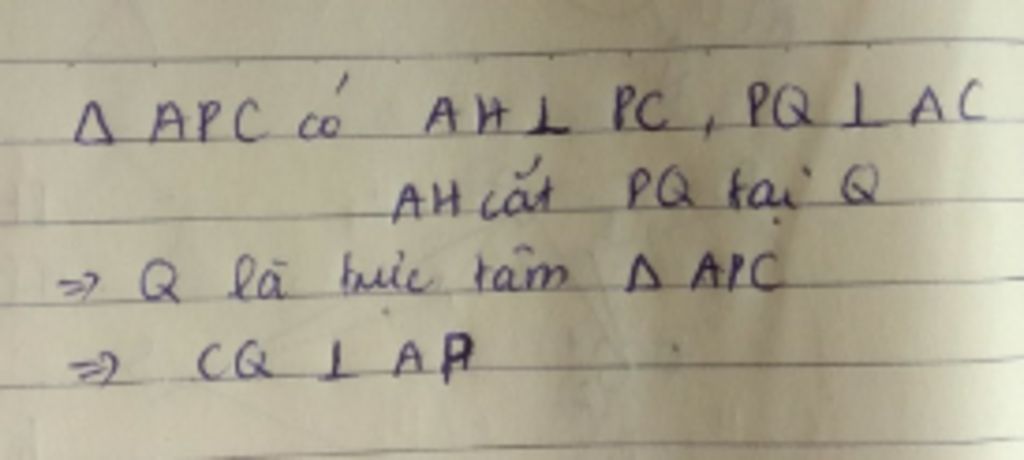 Δ APC có AH ⊥ PC, PQ ⊥ AC
AH cắt PQ tại Q
=> Q là trực tâm Δ APC
=> CQ ⊥ AP